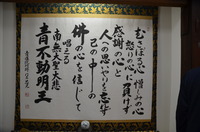 むさぼる心 憎しみの心
怒りの心に負けず
感謝の心と
人への思いやりを忘れず
己の中の
佛の心を信じて
唱える
南無大慈大悲
青不動明王